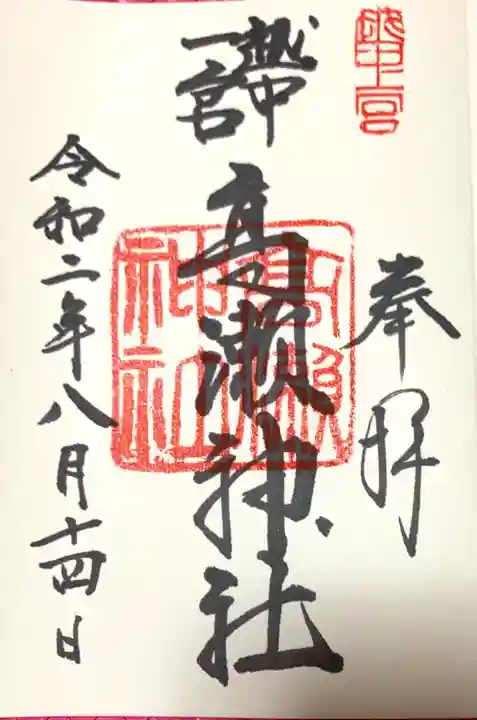 越中一宮
奉拝
越中
一宮
高瀬神社
高瀬神社
令和二年八月十四日